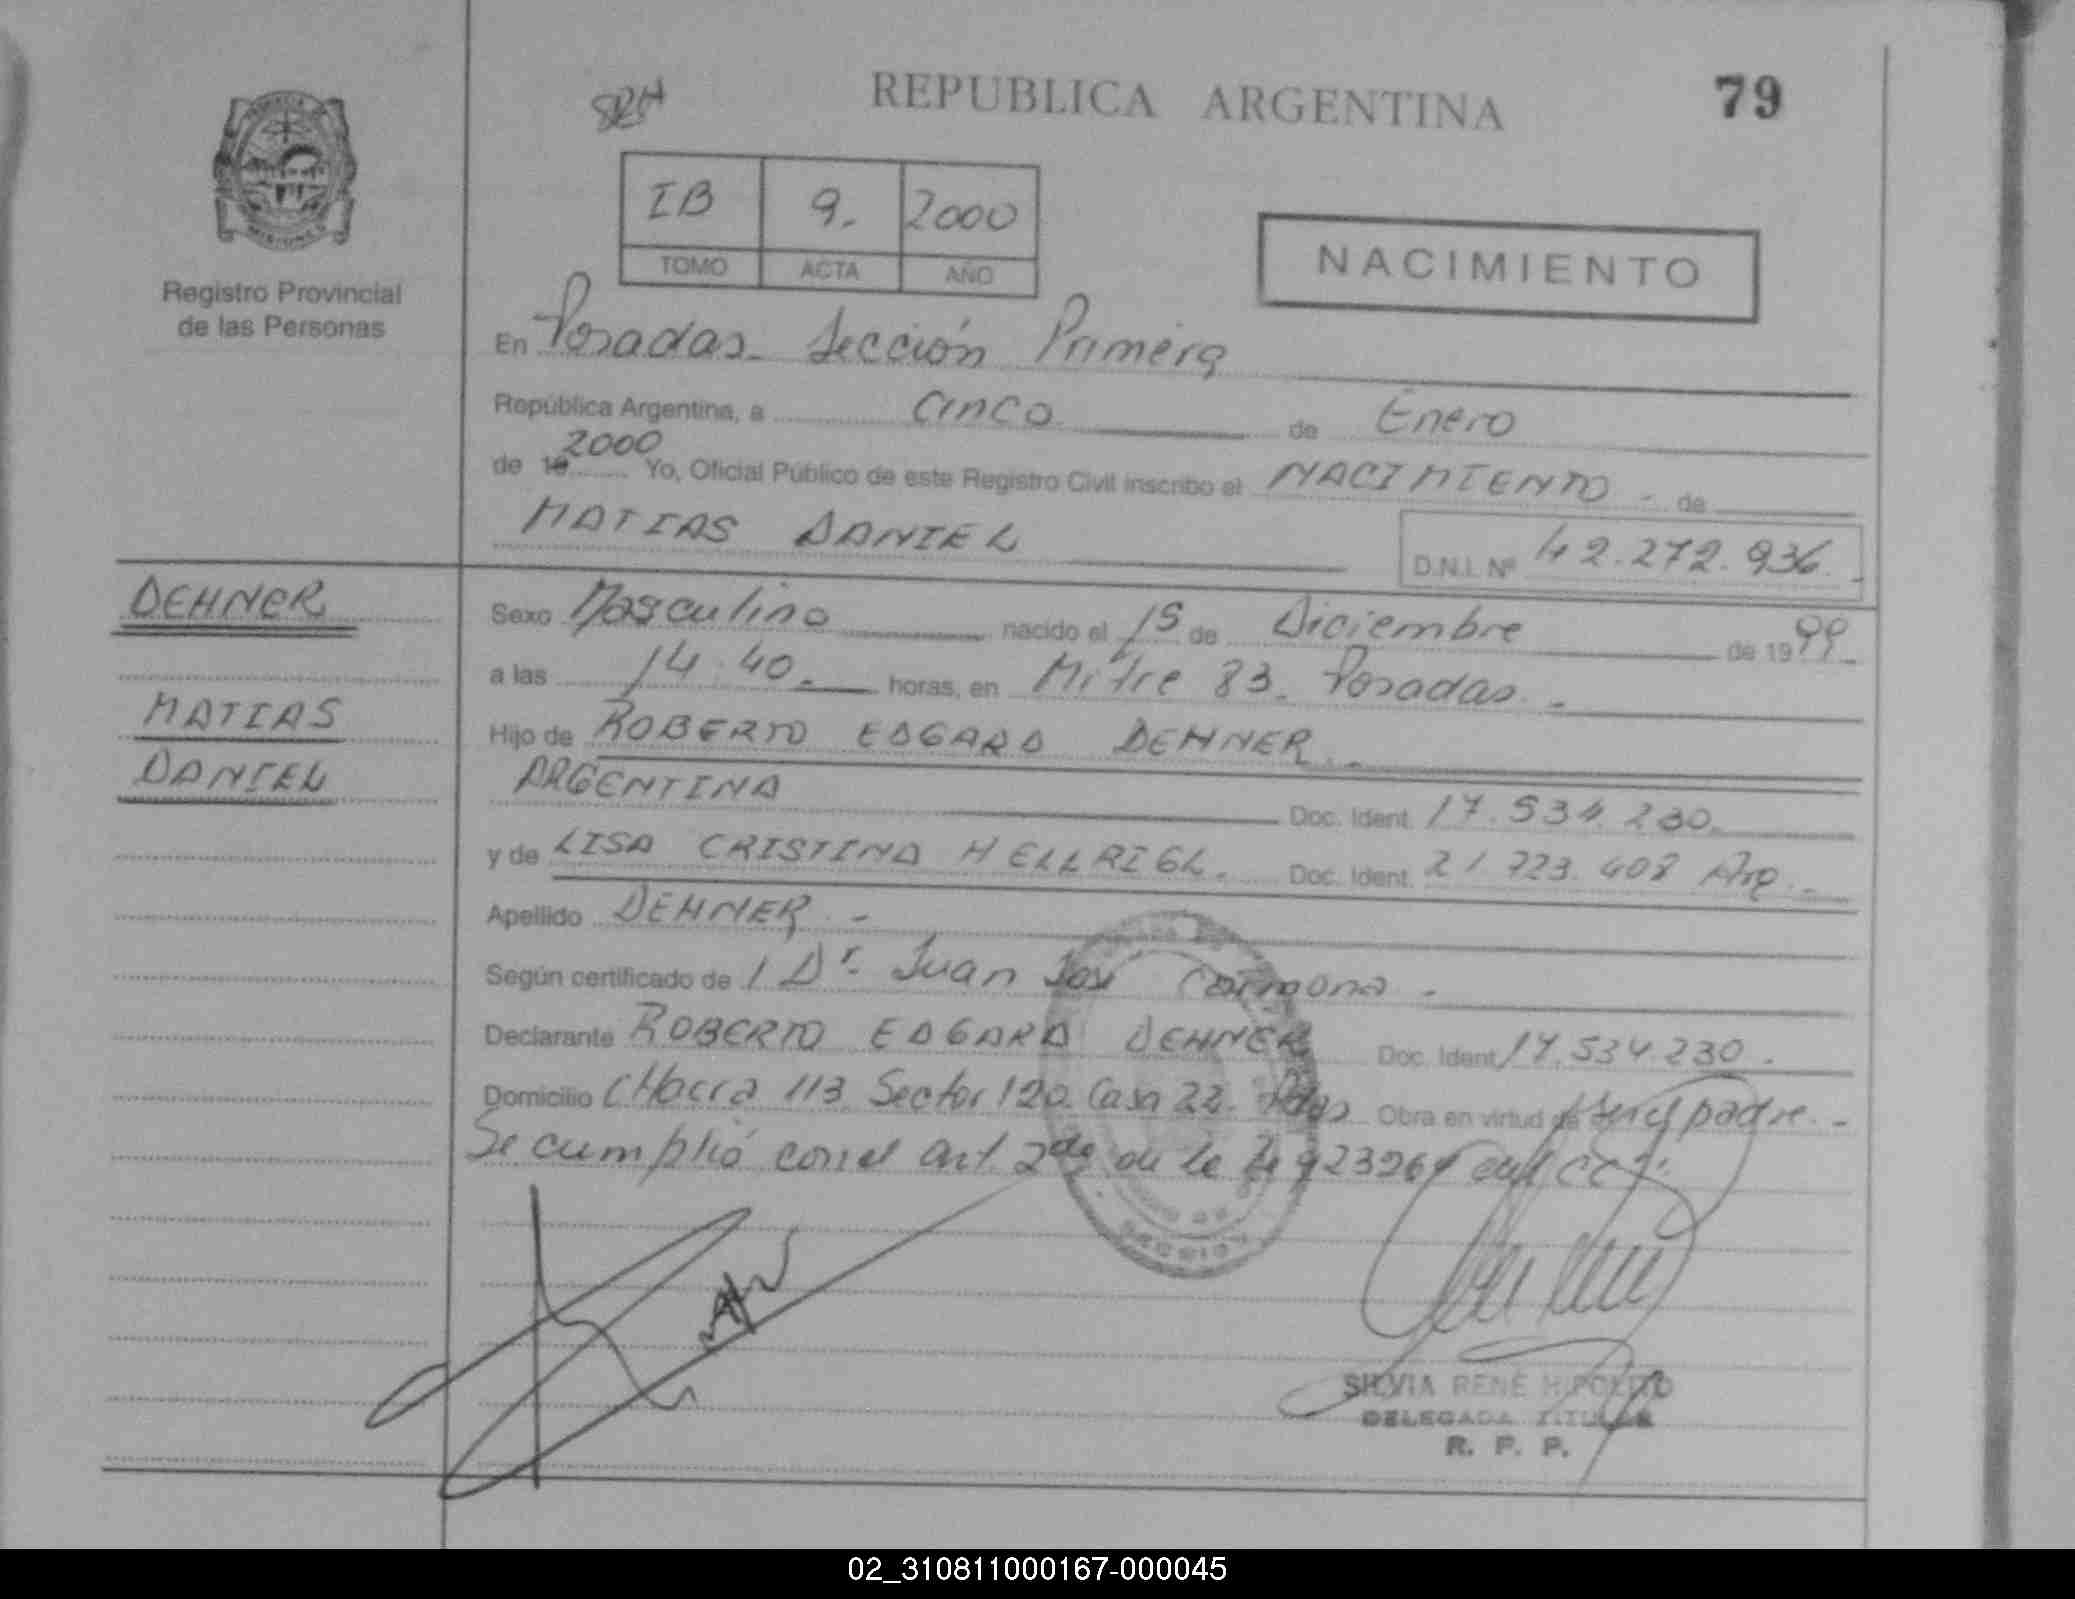 REPUBLICA ARGENTINA
79
IB 9. 2000
TOMO ACTA AÑO
NACIMIENTO
MISIONES
Registro Provincial
de las Personas
En Posadas. Sección Primera
República Argentina, a Cinco de Enero
de 19 2000 Yo, Oficial Público de este Registro Civil inscribo el NACIMIENTO.- de
MATIAS DANIEL
D.N.I. Nº 42.272.936.-
DEHNER
MATIAS
DANIEL
Sexo Masculino nacido el 15 de Diciembre de 1999.-
a las 14.40.- horas, en Mitre 83. Posadas.-
Hijo de ROBERTO EDGARD DEHNER.-
ARGENTINA Doc. Ident. 17.534.230.
y de LISA CRISTINA HELLRIGL. Doc. Ident. 21 723.408 Arg.-
Apellido DEHNER.-
Según certificado de l Dr. Juan José Carmona.-
Declarante ROBERTO EDGARD DEHNER Doc. Ident. 17.534.230.
Domicilio CHacra 113 Sector 120. Casa 22. Pdas Obra en virtud de ser el padre.-
Se cumplió con el art. 2do de la 23264 del CC
SILVIA RENÉ HIPOLITO
DELEGADA TITULAR
R. P. P.
02_310811000167-000045